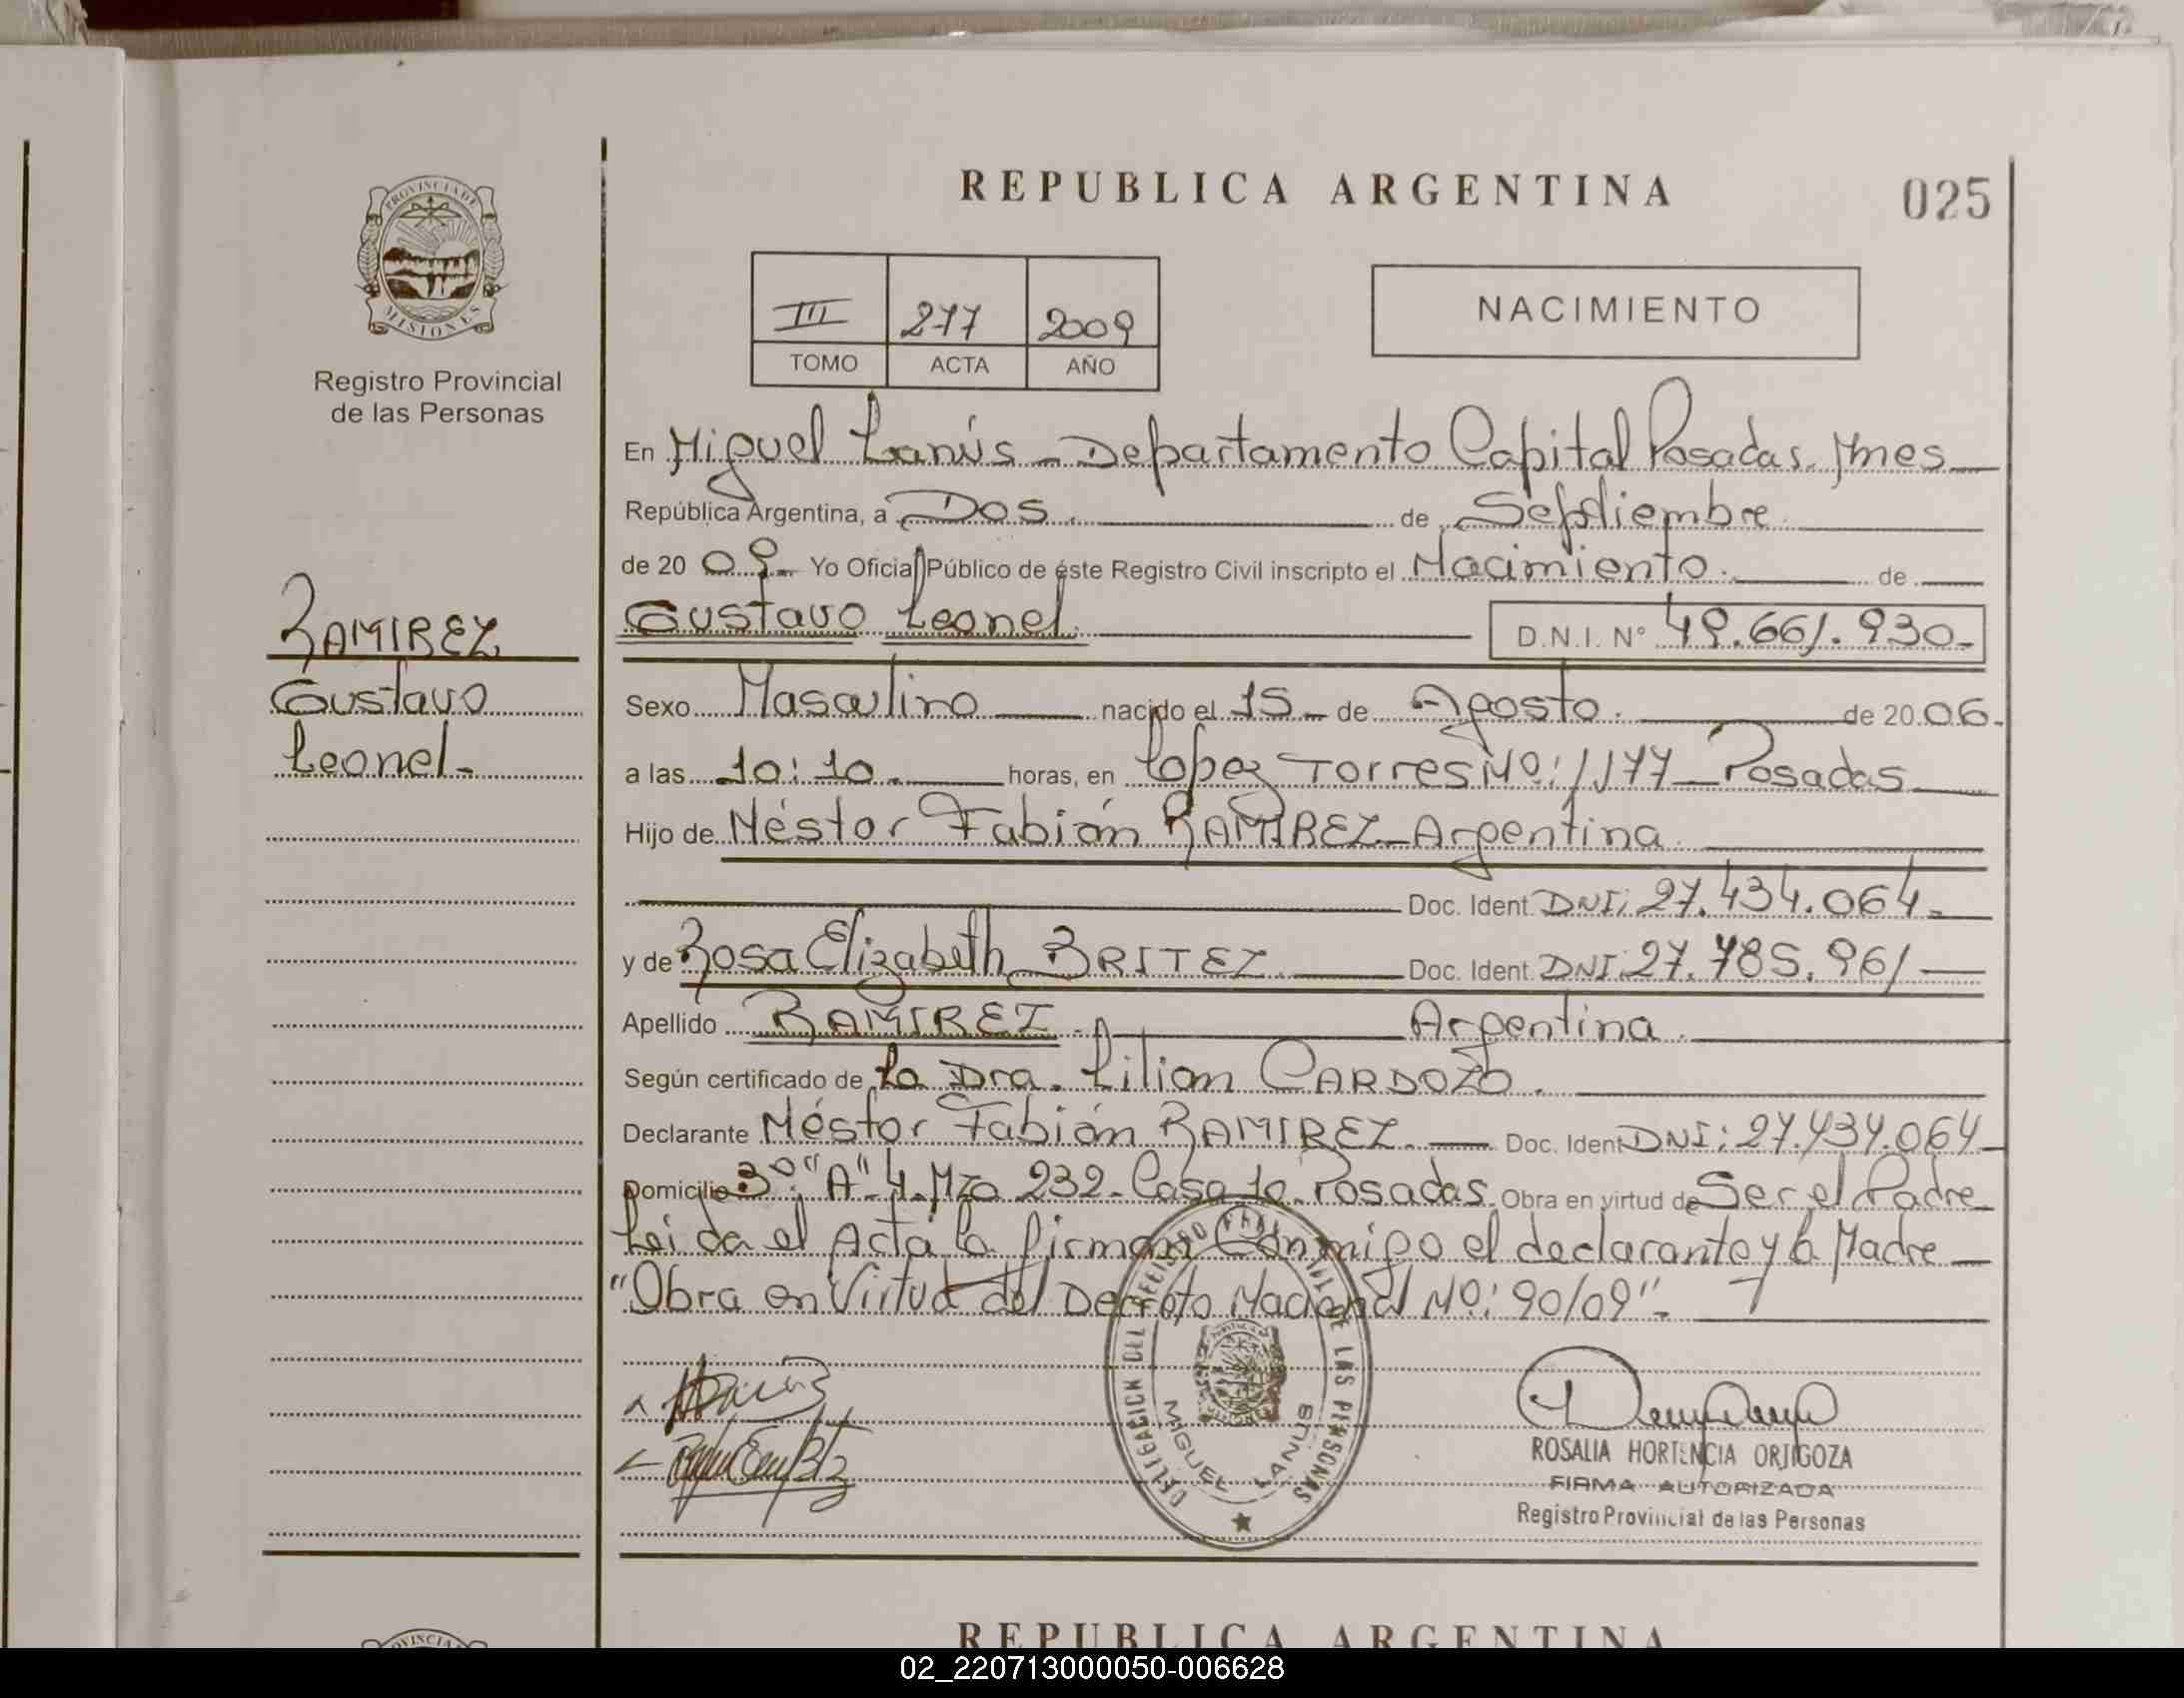 REPUBLICA ARGENTINA
025
PROVINCIA DE
MISIONES
Registro Provincial
de las Personas
III 277 2009
TOMO ACTA AÑO
NACIMIENTO
En Miguel Lanús - Departamento Capital Posadas. Mnes
República Argentina, a Dos. de Septiembre
de 20 09 - Yo Oficial Público de éste Registro Civil inscripto el Nacimiento. de
Gustavo Leonel. D.N.I. Nº 49.661.930-
RAMIREZ
Gustavo
Leonel-
Sexo Masculino nacido el 15 - de Agosto. de 20 06.
a las 10:10. horas, en Lopez Torres Nº: 1177 - Posadas
Hijo de Néstor Fabián RAMIREZ - Argentina.
Doc. Ident. DNI: 27.434.064-
y de Rosa Elizabeth BRITEZ Doc. Ident. DNI 27.785.961
Apellido RAMIREZ. Argentina.
Según certificado de La Dra. Lilian CARDOZO.
Declarante Néstor Fabián RAMIREZ. Doc. Ident DNI: 27.434.064
Domicilio 3º "A" 4. Mza 232 - Casa 10. Posadas. Obra en virtud de Ser el Padre
Leida el Acta la firman Conmigo el declarante y la Madre
"Obra en Virtud del Decreto Nacional Nº: 90/09"-
DELEGACION DEL REGISTRO PROVINCIAL DE LAS PERSONAS
MIGUEL LANUS
ROSALIA HORTENCIA ORTIGOZA
FIRMA AUTORIZADA
Registro Provincial de las Personas
REPUBLICA ARGENTINA
02_220713000050-006628